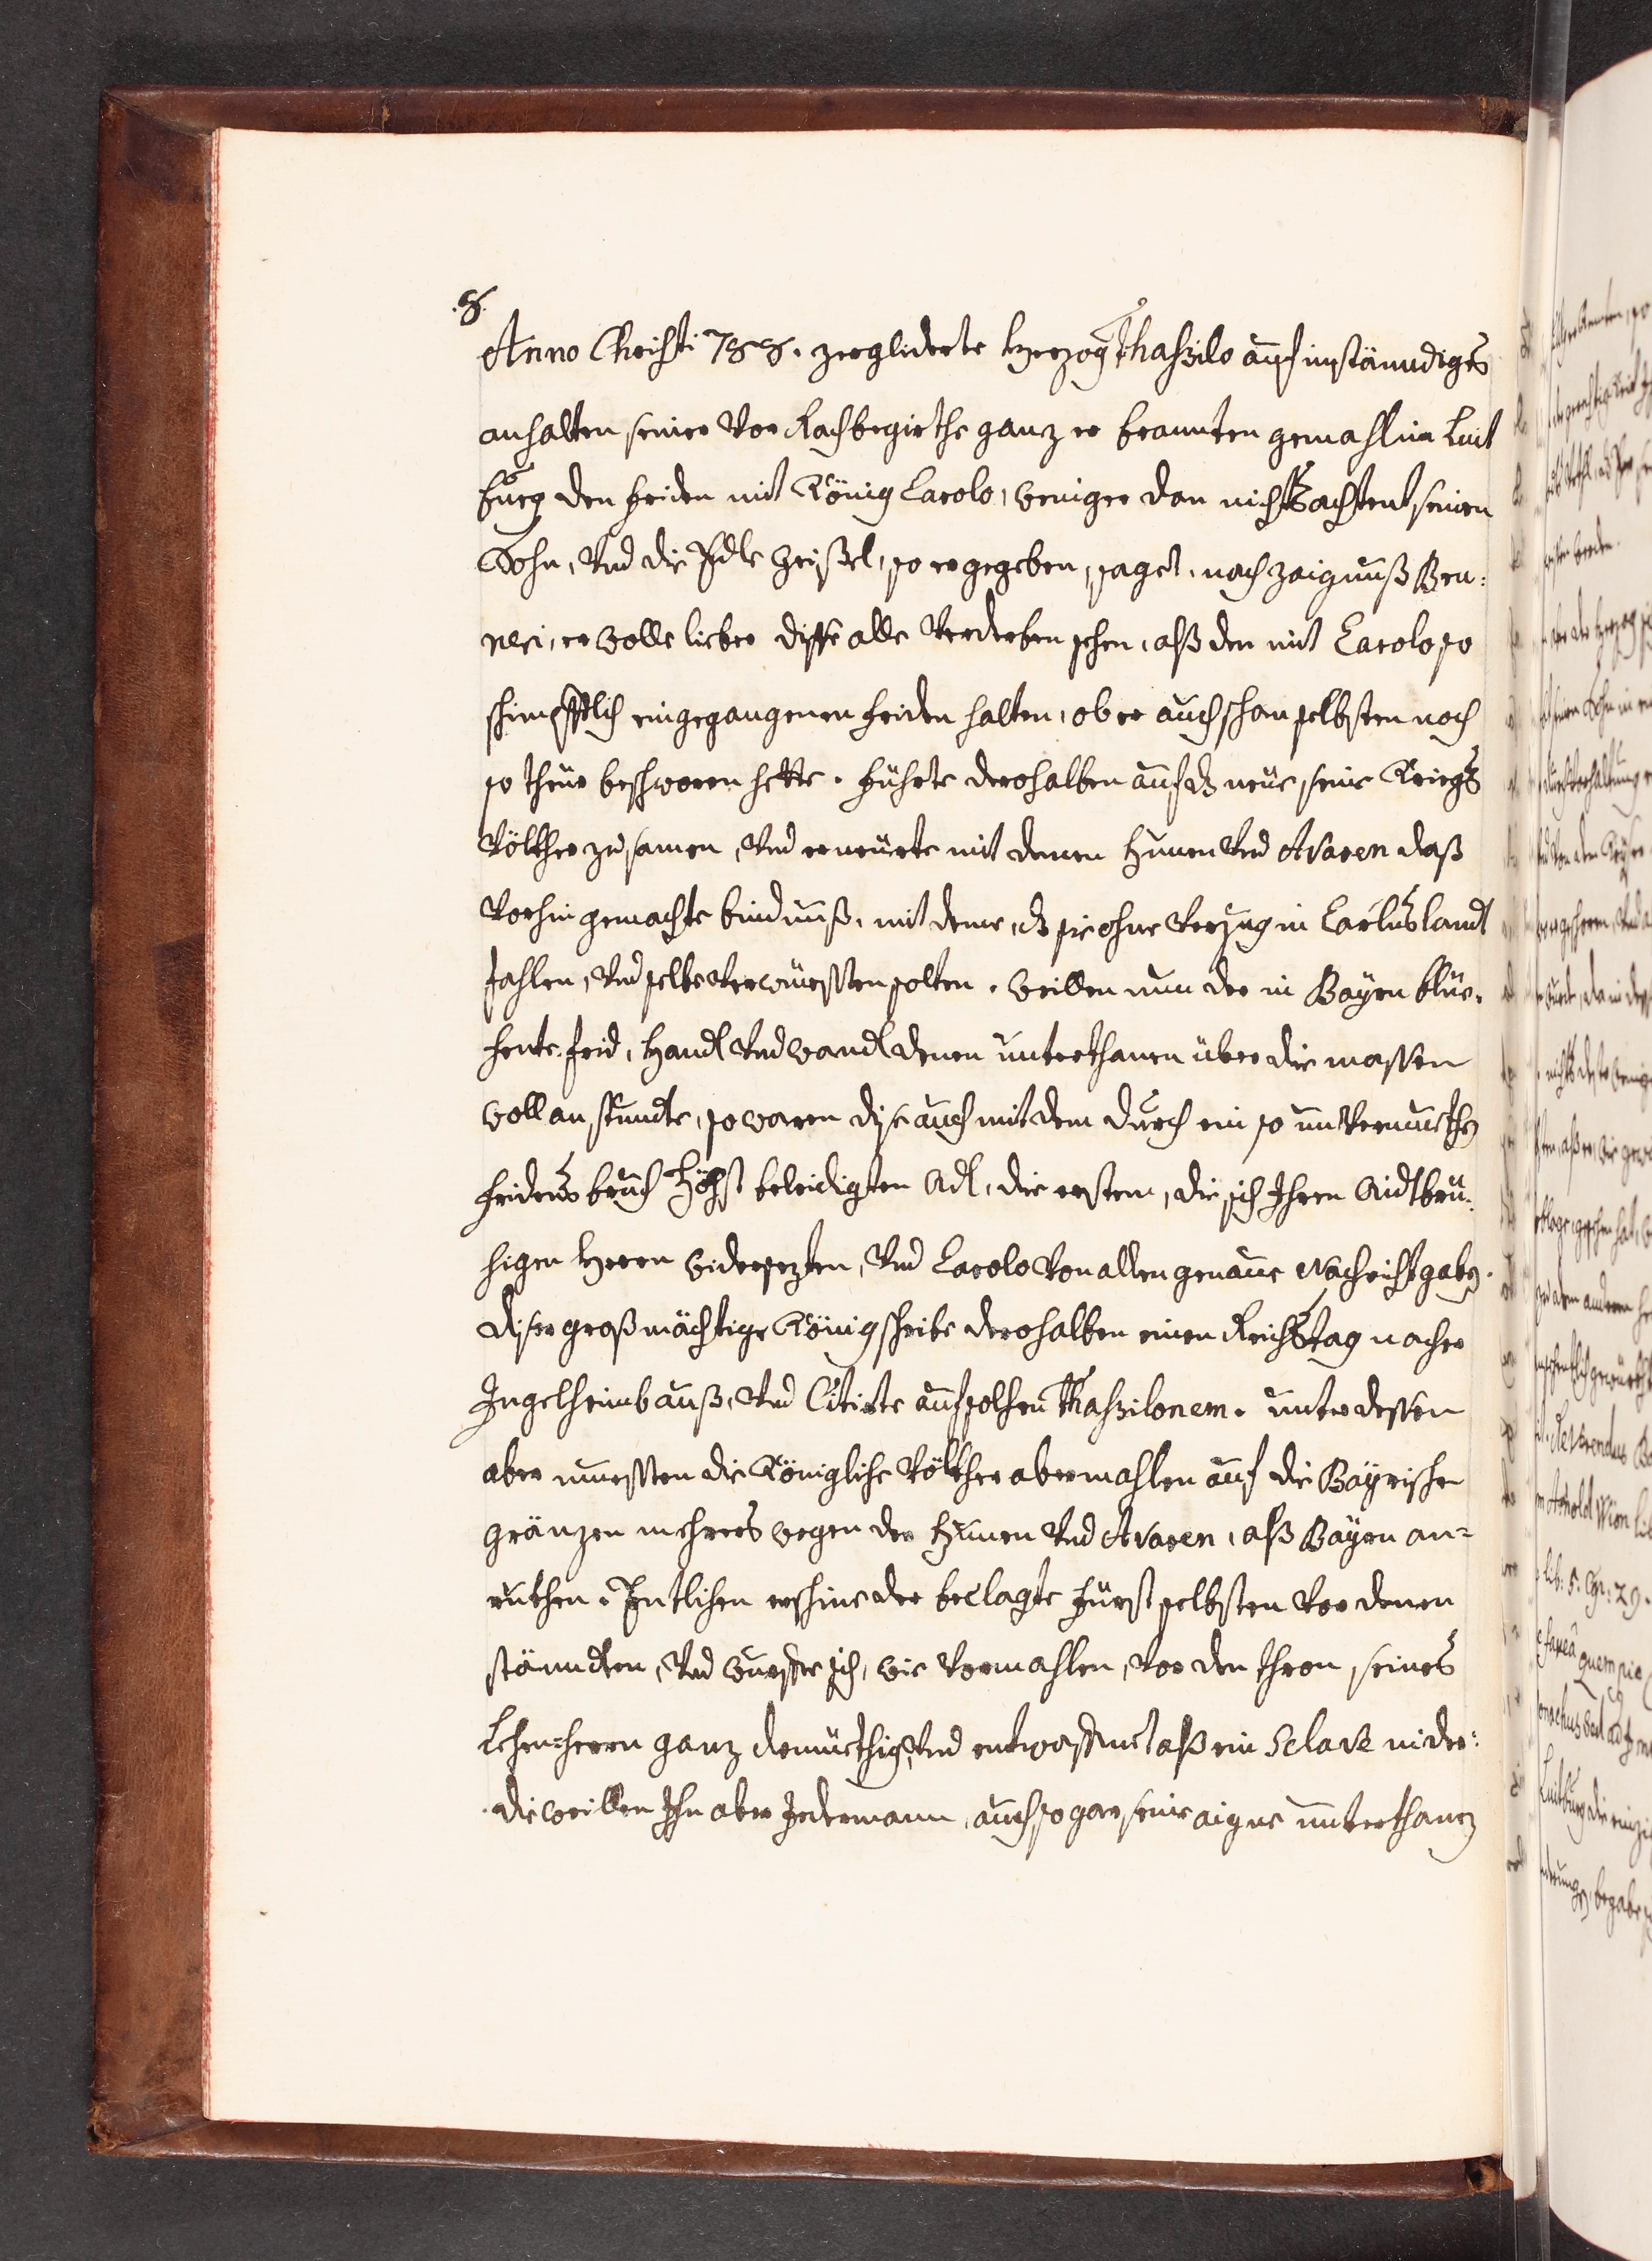 .8.
Anno Christi 788. zergliderte Herzog Thaßilo auf inständiges
anhalten seiner vor Rachbegirthe ganz er brannten gemahlin Luit
burg den friden mit König Carolo, weniger dan nichts achtent seinen
Sohn, vnd die Edle Geißel, so er gegeben, sagst, nach zaignuß Bru-
neri, er wolle lieber disse alle verderben sehen, alß den mit Carolo so
schimpfflich eingegangenen friden halten, ob er auch schon selbsten noch
so theur beschworen hette. führte derohalben auf ds neue seine Kriegs
Völkher zusamen, vnd erneürte mit denen Hunen vnd Avaren daß
vorhin gemachte bindnuß, mit deme, ds sie ohne verzug in Carls landt
fahlen, vnd selbe verwüessten solten. weillen nun der in Bayrn blüe-
hente frid, handl vnd wandl denen unterthanen über die massen
woll an stundte, so waren dise auch mit dem durch ein so unvermuethen
fridens bruch höchst beleidigten Adl, die erstern, die sich Ihren Aidtbrü-
chigen Herrn widersezten, vnd Carolo von allen genaue Nachricht gaben.
diser großmächtige König schribe derohalben einen Reichstag nacher
Ingelheimb auß, vnd Citirte auf solhen Thaßilonem. unterdessen
aber muessten die Königliche Völkher abermahlen auf die Bayrischen
gränzen mehrers wegen der Hunen vnd Avaren, alß Bayrn an-
rukhen. Entlichen erschine der beclagte fürst selbsten vor denen
ständten, vnd wurffe sich, wie vormahlen, vor den thron seines
Lehen-herrn ganz demüethig, vnd entwaffnet alß ein Sclave nider:
dieweillen Ihn aber Jedermann, auch so gar seine aigne unterthanen